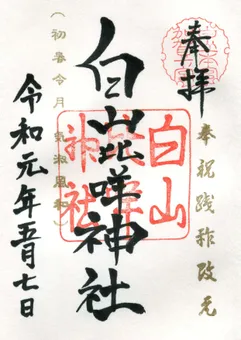 奉拝
奉祝践祚改元
白山比咩神社
白山比咩神社
（初春令月　氣淑風和）
令和元年五月七日